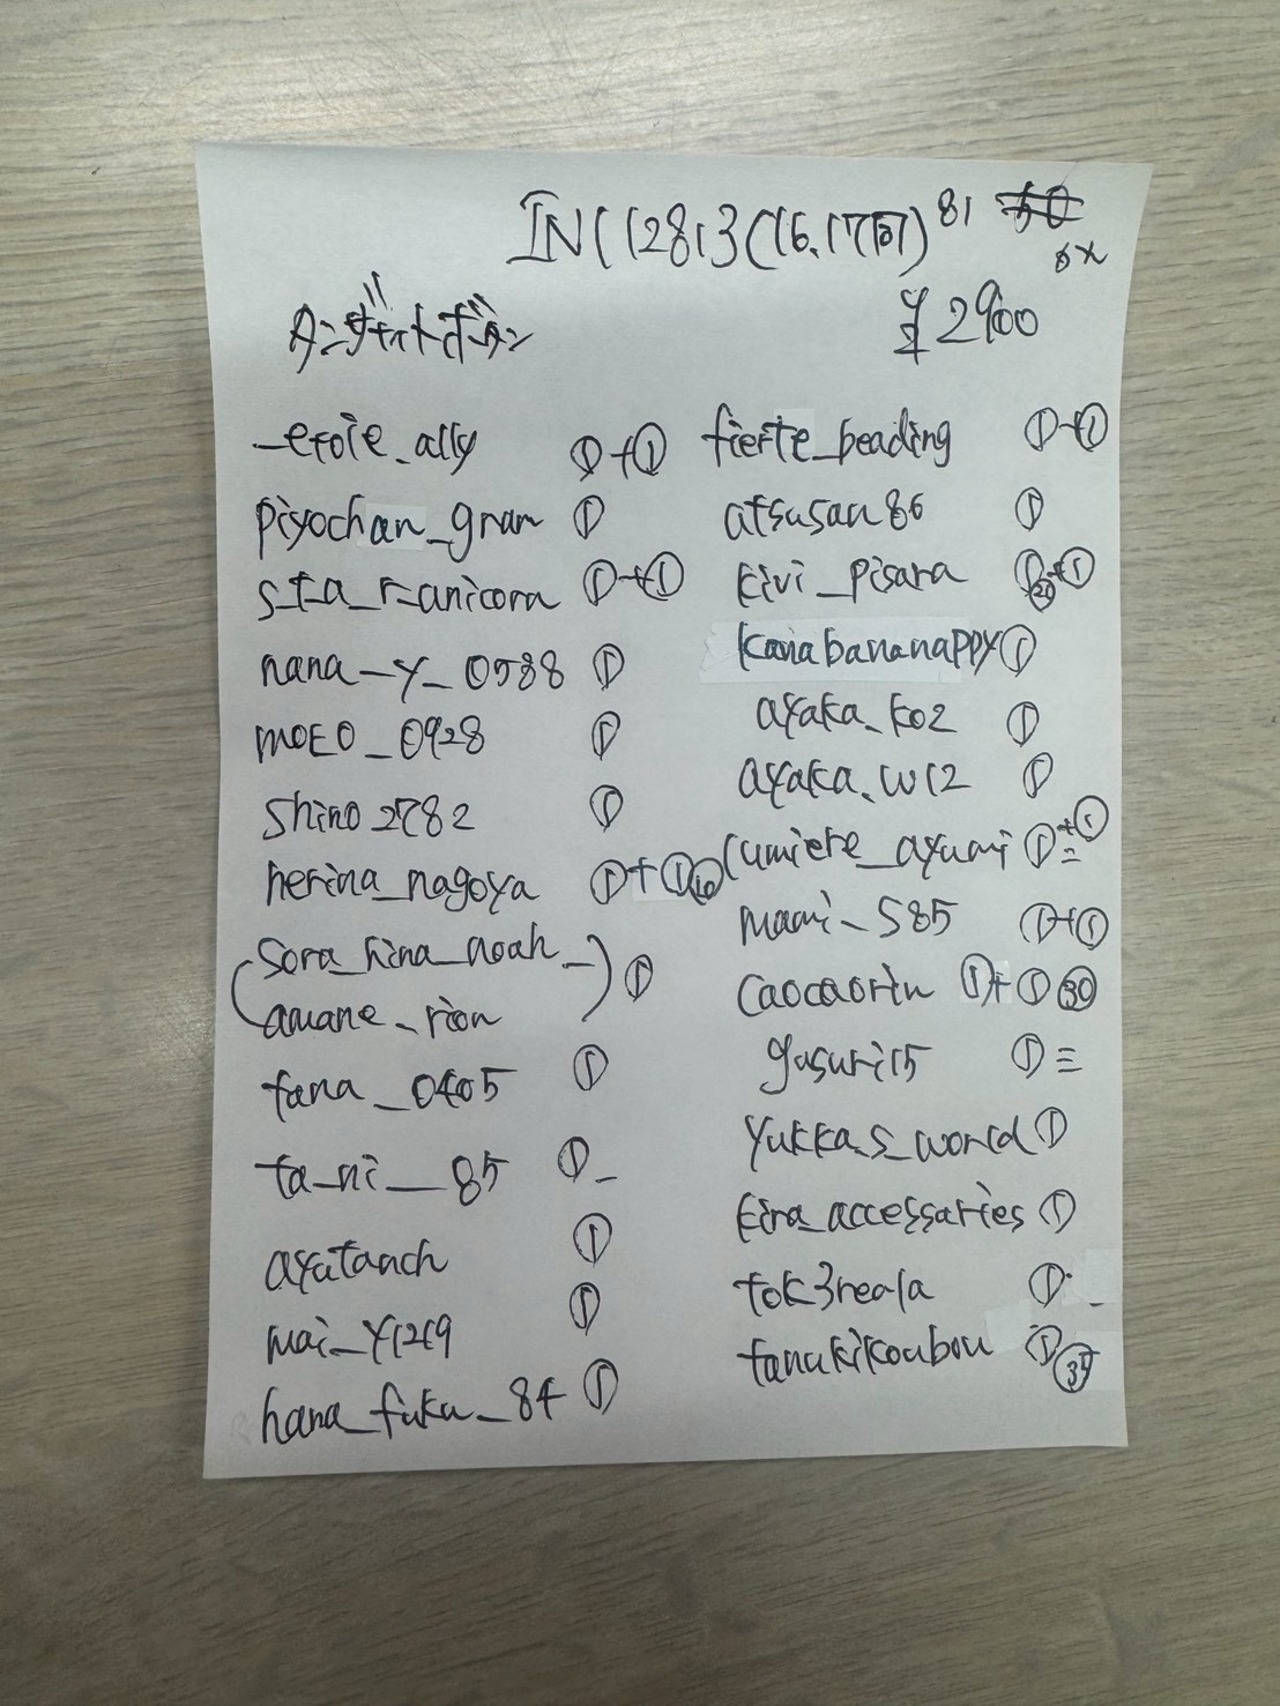 IN112813(16.17同)81
6x
¥2900
_etoie_ally ①+①
piyochan_gram ①
s_t_a_r_anicora ①+①
nana_y_0588 ①
moeo_0928 ①
shino2782 ①
herina_nagoya ①+①⑩
(sora_hina_noah_
amane_rion) ①
tana_0405 ①
ta_ni__85 ①_
ayatanch ①
mai_y1219 ①
hana_fuku_84 ①
fierte_beading ①+①
atsusan86 ①
kivi_pisara ①⑳+①
kanabananappy ①
ayaka_ko2 ①
ayaka.w12 ①
lumiere_ayumi ①+①=
mami_585 ①+①
caocaorin ①+①㉚
gusuri15 ①=
yukka.s_world ①
kira_accessaries ①
tok3reala ①
tanukikoubou ①㉟